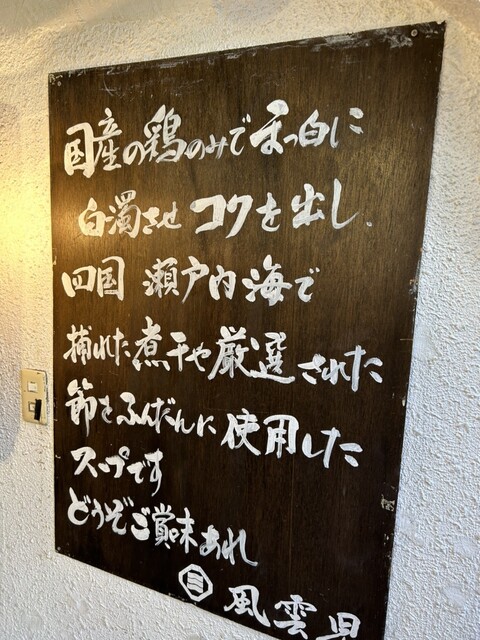 国産の鶏のみで まっ白に
白濁させ コクを出し、
四国 瀬戸内海で
捕れた煮干や厳選された
節をふんだんに使用した
スープです
どうぞご賞味あれ
三 風雲児